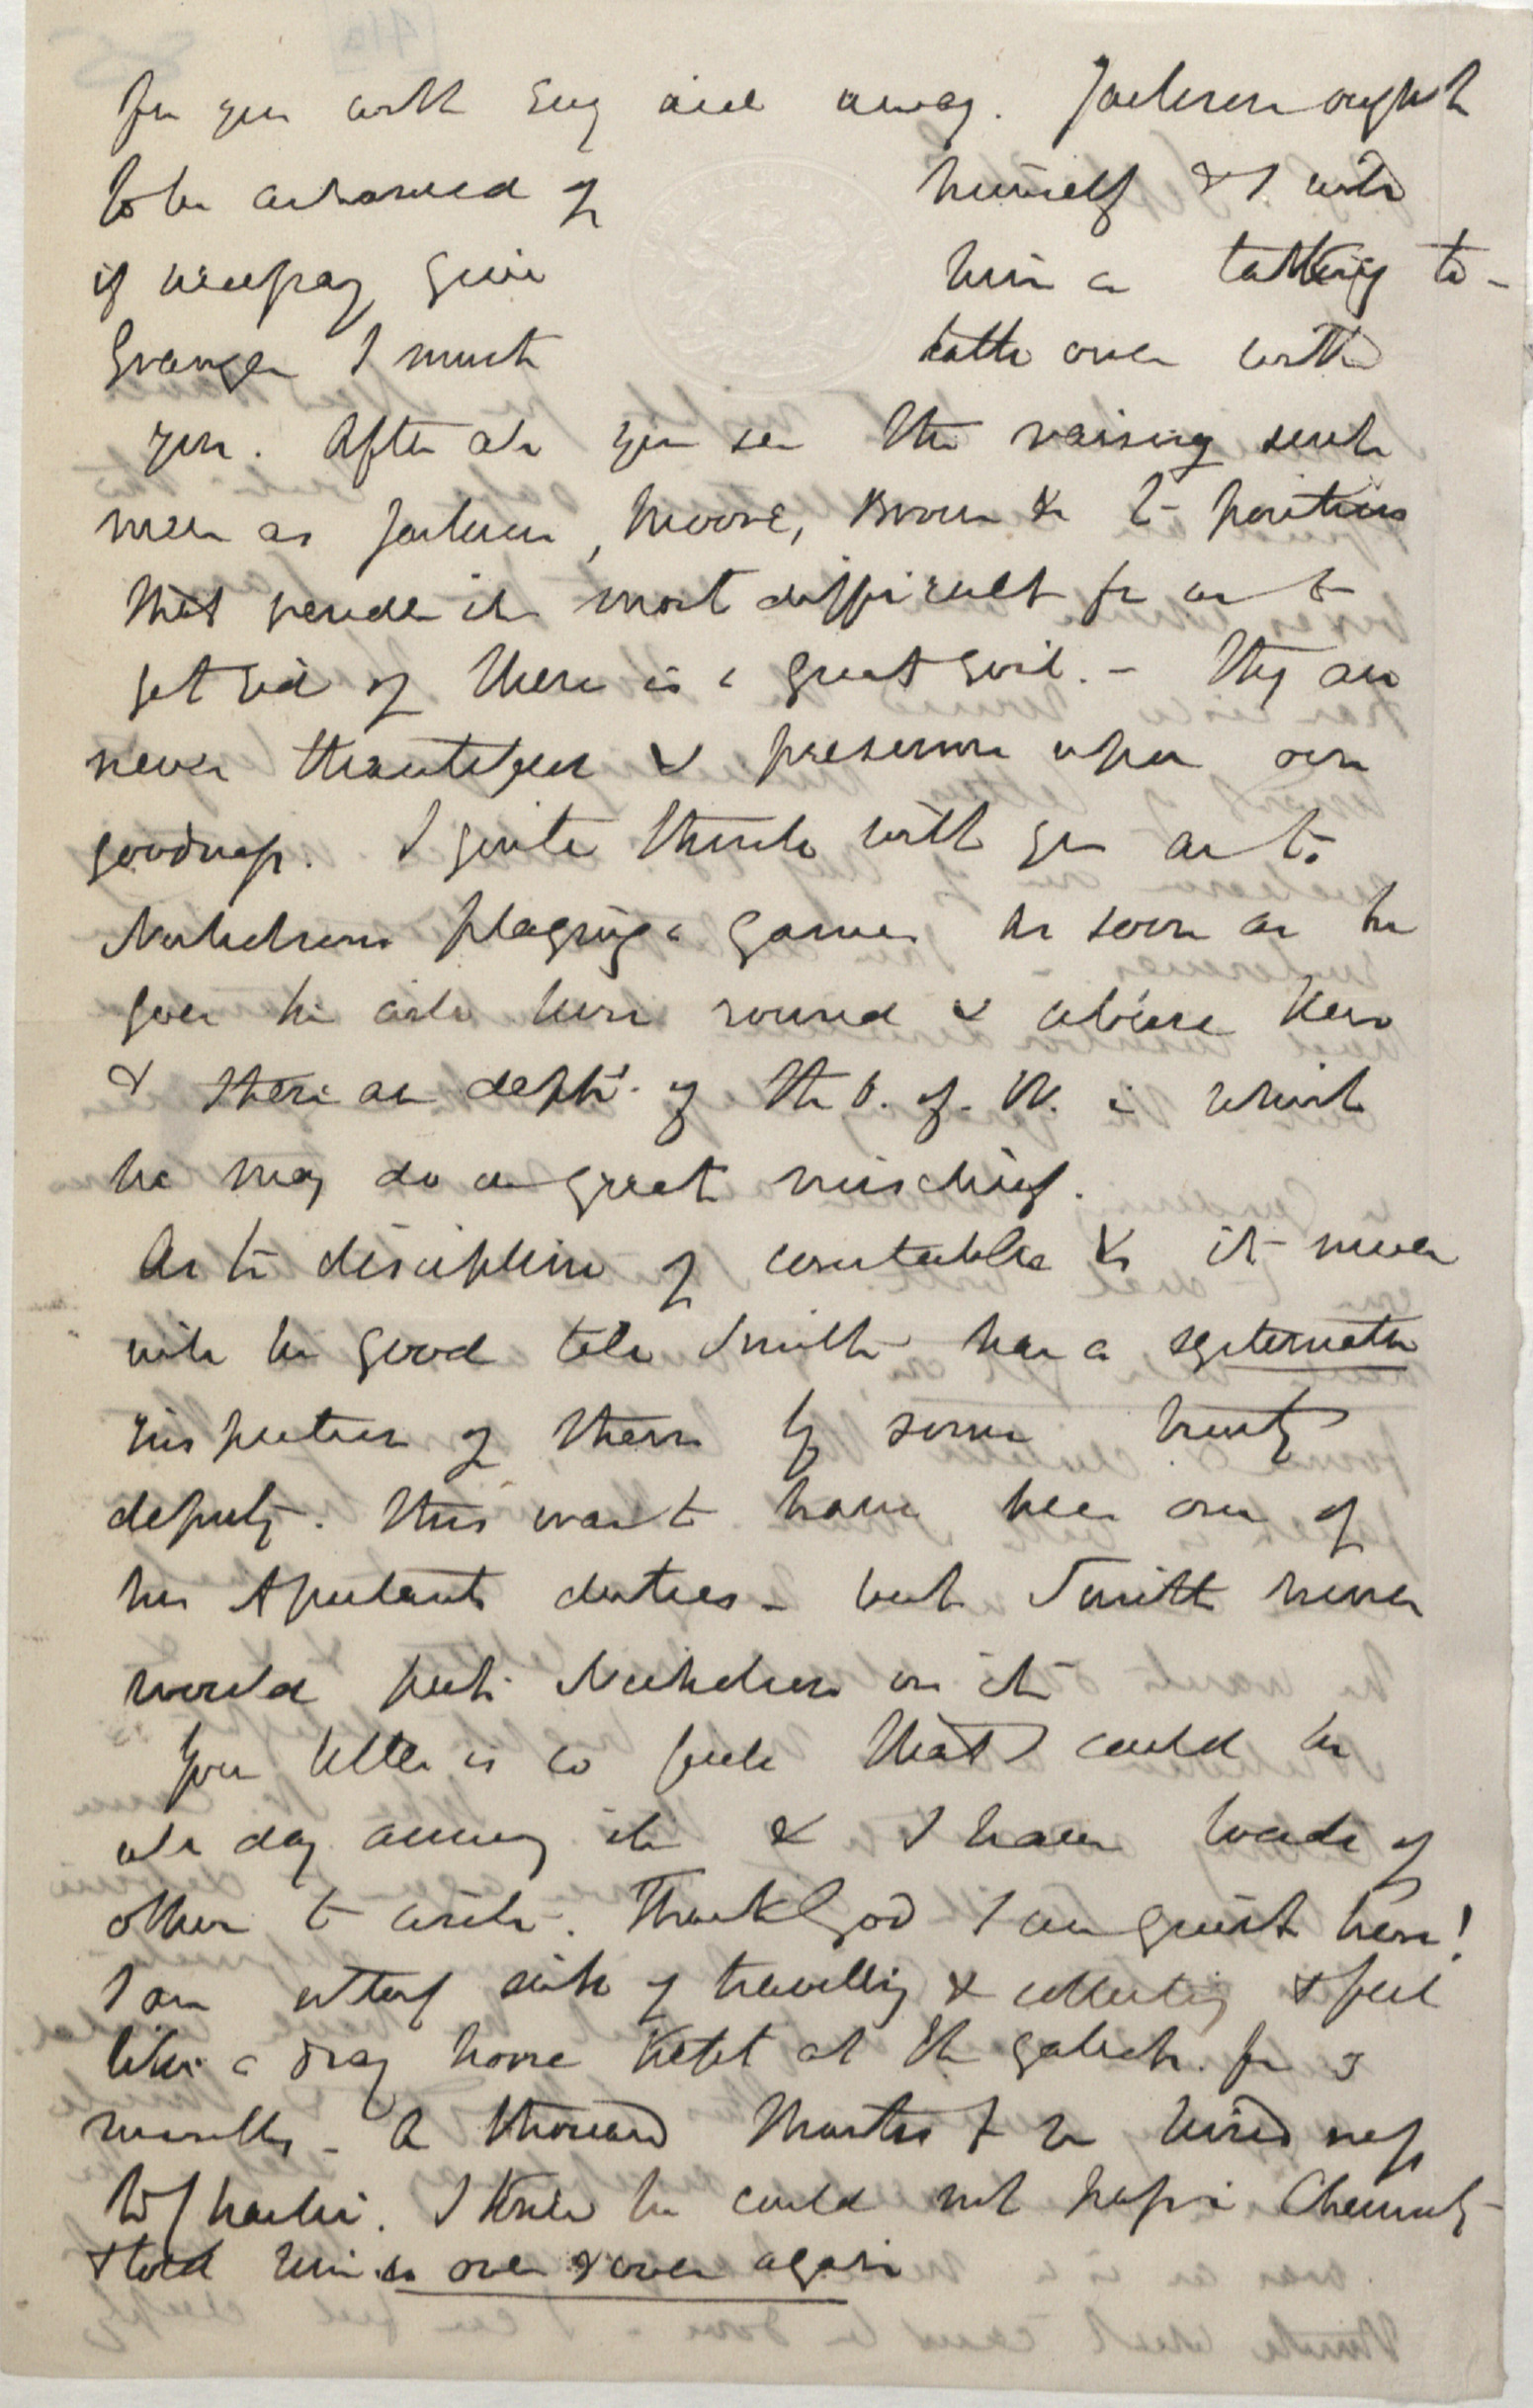 for you with Eug and away. Jackson ought
to be ashamed of himself & I will
if necessary give him a talking to -
Granger I must talk over with
you. After all you see the raising such
men as Jackson, Moore, Brown &c to positions
that render it most difficult for us to
get rid of them is a great evil. - They are
never thankful & presume upon our
goodness. I quite think with you as to
Nicholsons playing a game as soon as he
goes he will turn round & abuse them
& there are depts. of the O. of W. in which
he may do a great mischief.
As to discipline of constables &c it never
will be good till Smith has a systematic
inspection of them by some trusty
deputy. This was to have been one of
his Assistants duties - but Smith never
would put Nicholson on it
Your letter is so full that I could be
all day answering it & I have loads of
others to write. Thank God I am quiet here!
I am utterly sick of travelling & collecting & feel
like a dray horse kept at the gallop for 3
months - A thousand thanks for your kindness
to Charlie. I knew he could not pass in Chemistry
& told him so over & over again